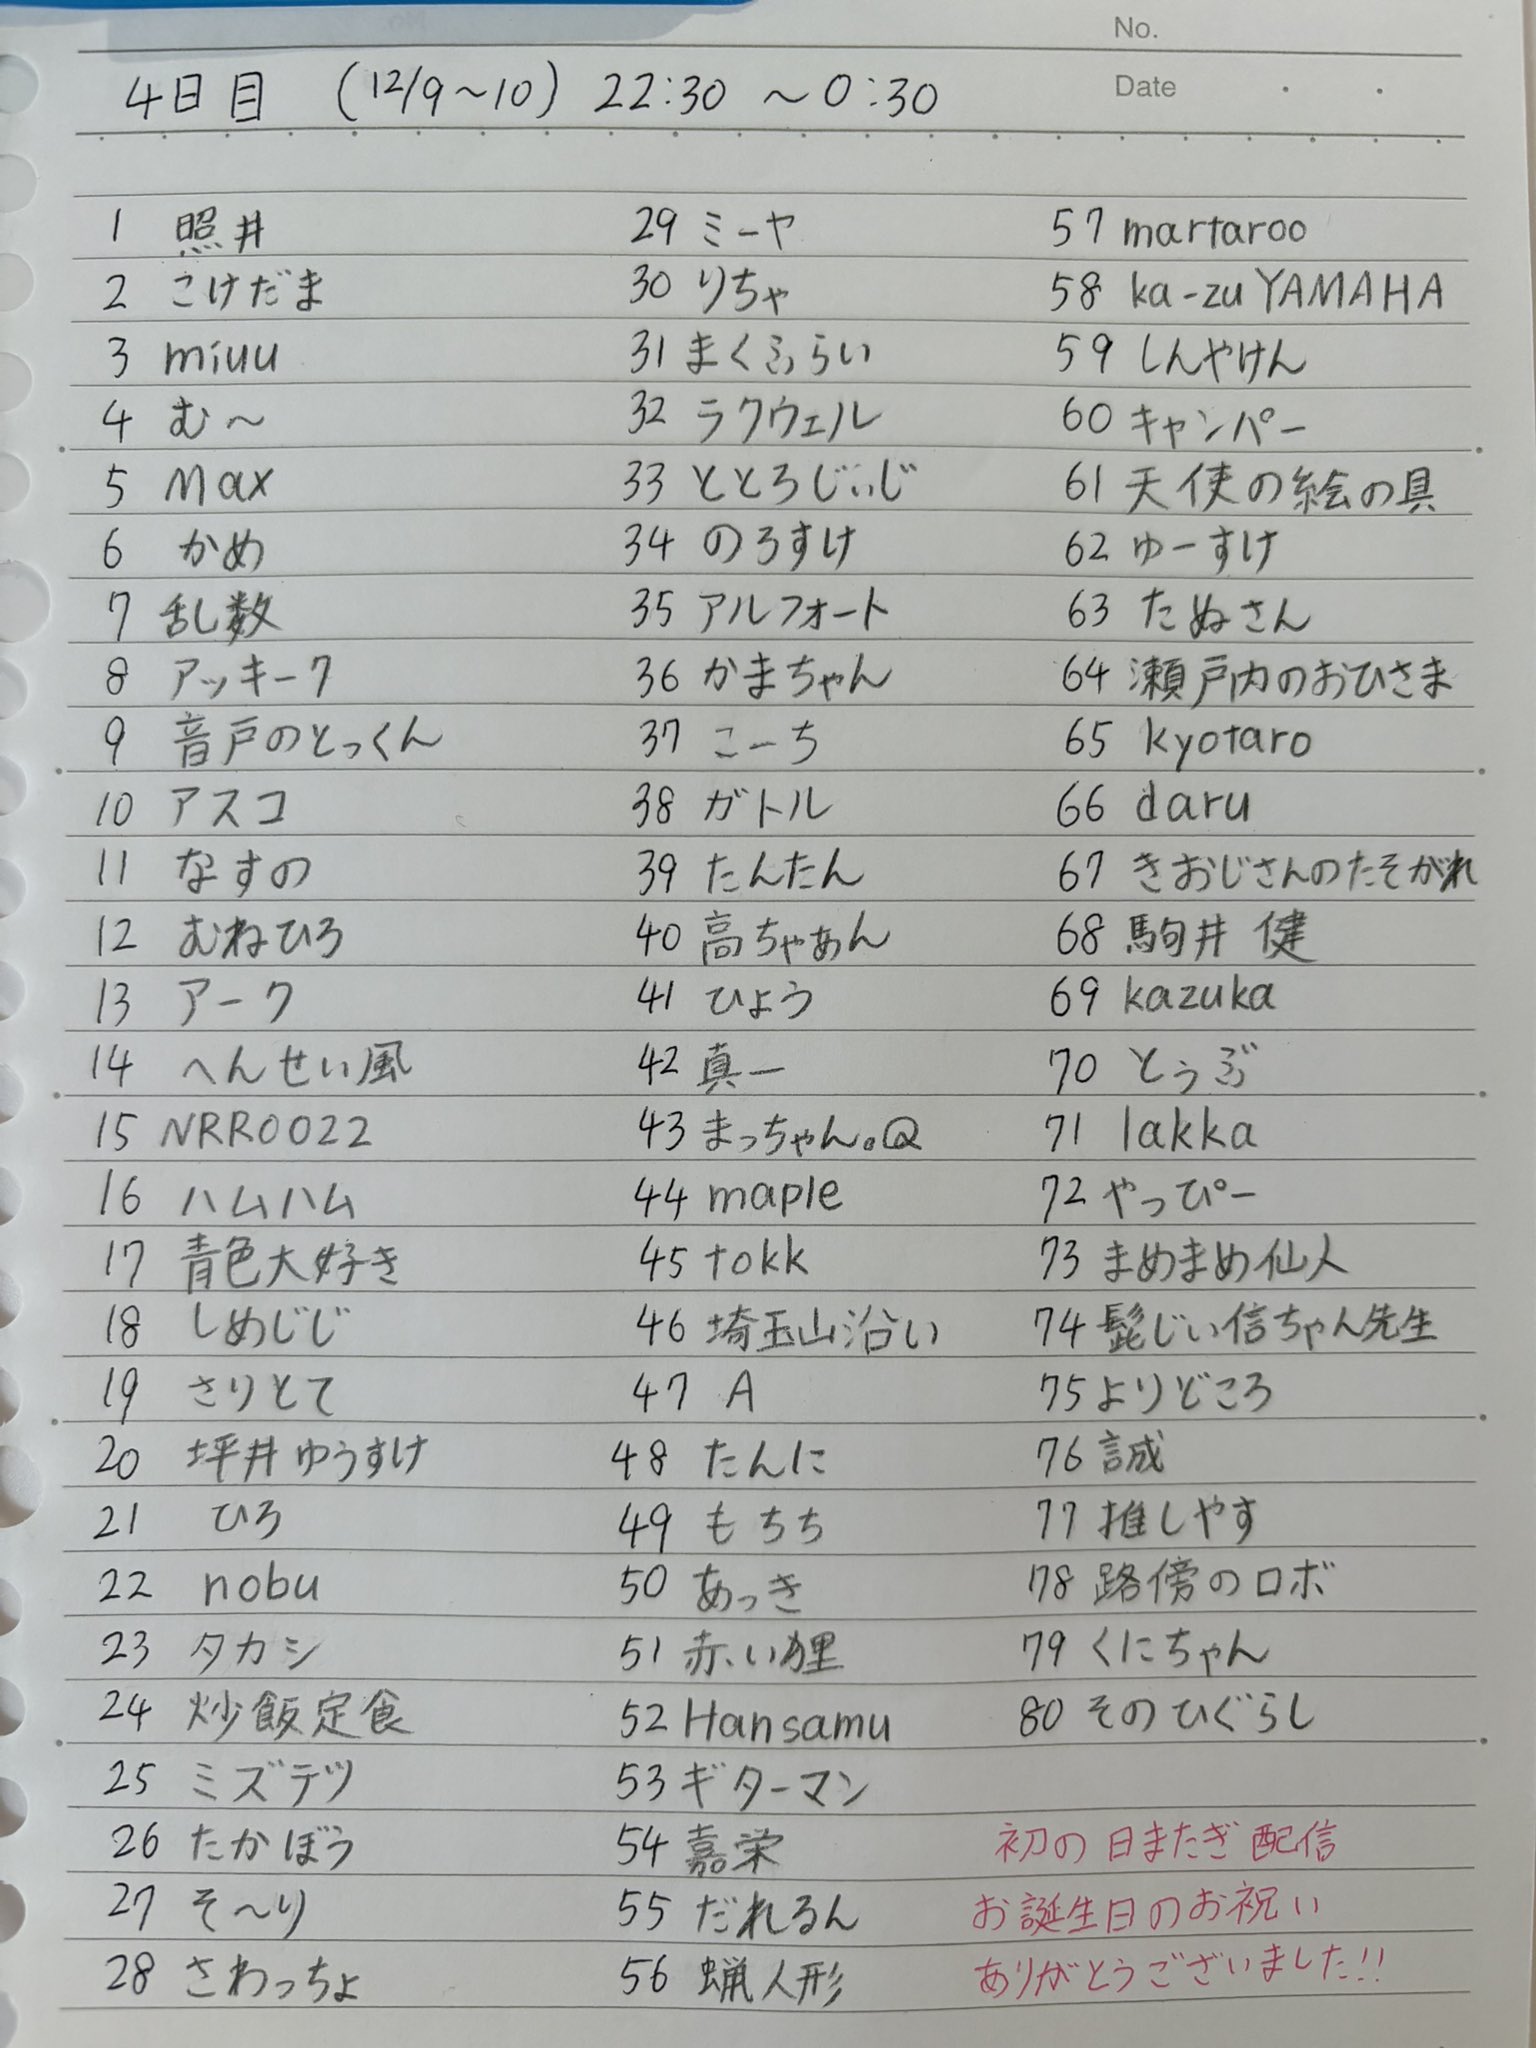 No.
Date
4日目 (12/9~10) 22:30 ~0:30
1 照井
2 こけだま
3 miuu
4 む~
5 Max
6 かめ
7 乱数
8 アッキーク
9 音戸のとっくん
10 アスコ
11 なすの
12 むねひろ
13 アーク
14 へんせい風
15 NRR0022
16 ハムハム
17 青色大好き
18 しめじじ
19 さりとて
20 坪井ゆうすけ
21 ひろ
22 nobu
23 タカシ
24 炒飯定食
25 ミズテツ
26 たかぼう
27 そ~り
28 さわっちょ
29 ミーヤ
30 りちゃ
31 まくふらい
32 ラクウェル
33 ととろじぃじ
34 のろすけ
35 アルフォート
36 かまちゃん
37 こーち
38 ガトル
39 たんたん
40 高ちゃあん
41 ひょう
42 真一
43 まっちゃん。Q
44 maple
45 tokk
46 埼玉山沿い
47 A
48 たんに
49 もちち
50 あっき
51 赤い狸
52 Hansamu
53 ギターマン
54 嘉栄
55 だれるん
56 蝋人形
57 martaroo
58 ka-zu YAMAHA
59 しんやけん
60 キャンパー
61 天使の絵の具
62 ゆーすけ
63 たぬさん
64 瀬戸内のおひさま
65 kyotaro
66 daru
67 きおじさんのたそがれ
68 駒井 健
69 kazuka
70 とぅぶ
71 lakka
72 やっぴー
73 まめまめ仙人
74 髭じい信ちゃん先生
75 よりどころ
76 誠
77 推しやす
78 路傍のロボ
79 くにちゃん
80 そのひぐらし
初の日またぎ配信
お誕生日のお祝い
ありがとうございました!!